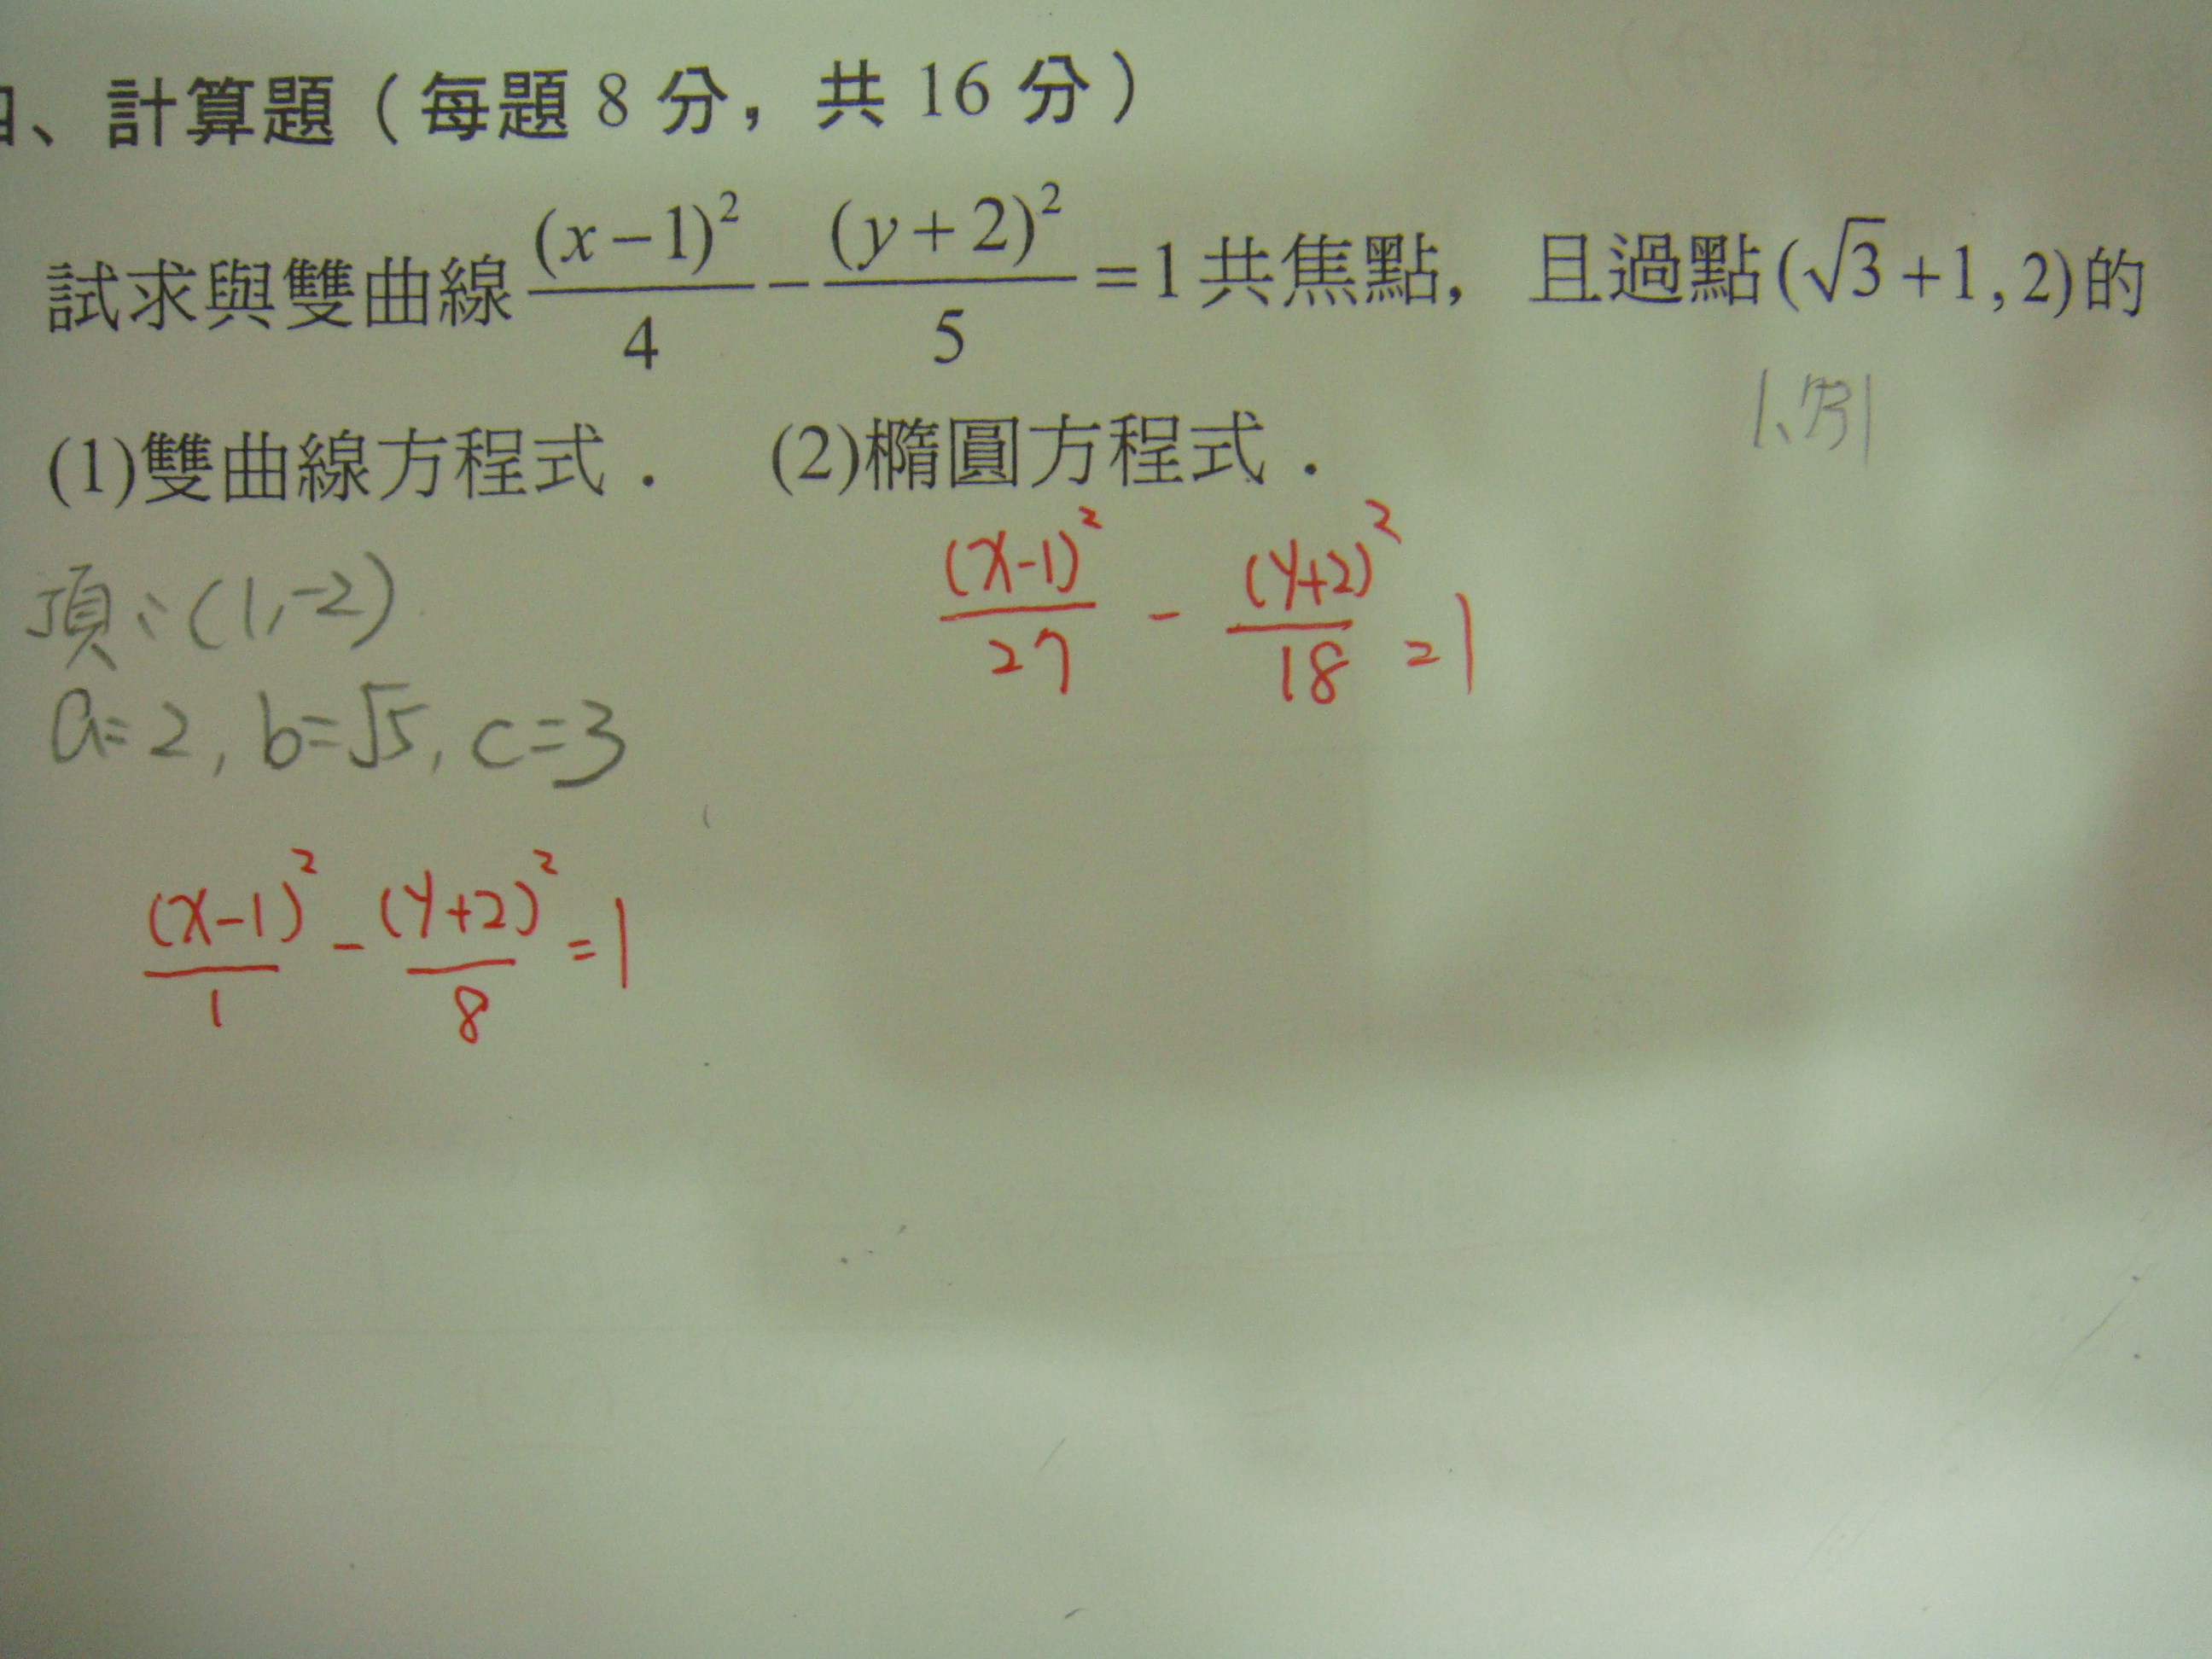 、計算題（每題 8 分，共 16 分）
試求與雙曲線 (x-1)²/4 - (y+2)²/5 = 1 共焦點，且過點(√3+1, 2)的
(1)雙曲線方程式． (2)橢圓方程式．
頂：(1,-2)
a=2, b=√5, c=3
(x-1)²/27 - (y+2)²/18 = 1
(x-1)²/1 - (y+2)²/8 = 1